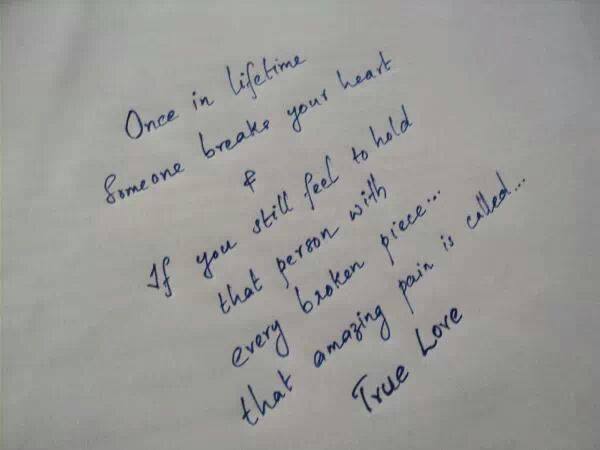 Once in lifetime
Someone breaks your heart
&
If you still feel to hold
that person with
every broken piece...
that amazing pain is called...
True Love